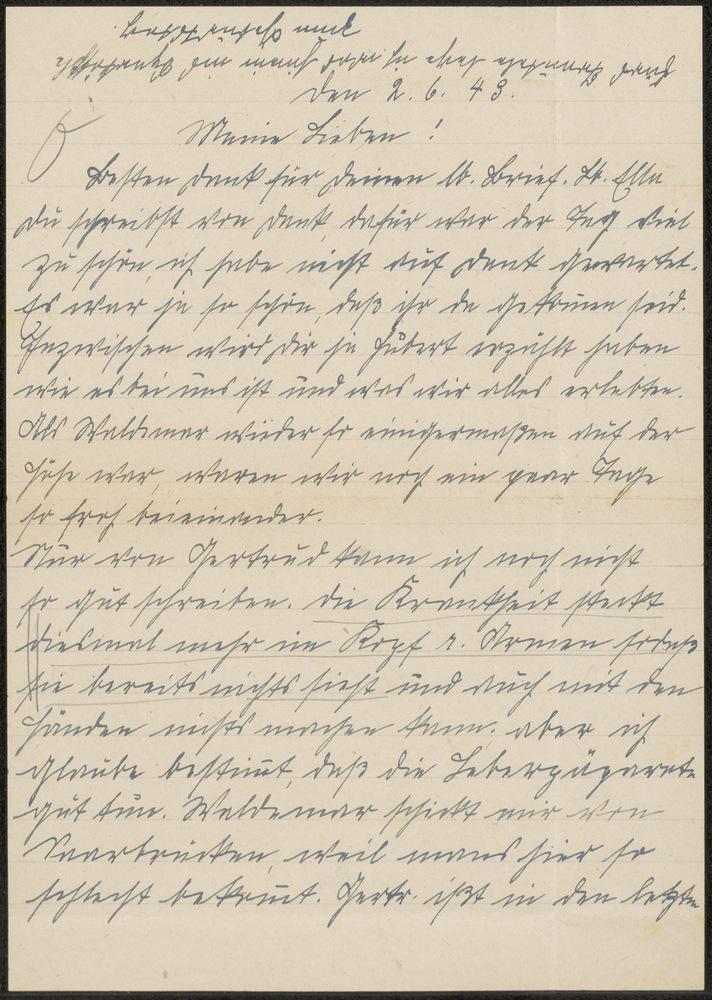 den 2. 6. 43.
Meine Lieben!
Besten Dank für Deinen lb. Brief. Lb. Ella
Du schreibst von Dank, dafür war der Tag viel
zu schön, ich habe nicht auf Dank gewartet.
Es war ja so schön, daß ihr da gekom̅en seid.
Inzwischen wird Dir ja Hubert erzählt haben
wie es bei uns ist und was wir alles erlebten.
Als Waldemar wieder so einigermaßen auf der
Höhe war, waren wir noch ein paar Tage
so froh beieinander.
Nur von Gertrud kann ich noch nicht
so gut schreiben. Die Krankheit steckt
diesmal mehr im Kopf u. Armen sodaß
sie bereits nichts sieht und auch mit den
Händen nichts machen kann. aber ich
glaube bestim̅t, daß die Leberpäparate
gut tun. Waldemar schickt mir von
Saarbrücken, weil mans hier so
schlecht bekom̅t. Gertr. ißt in den letzten